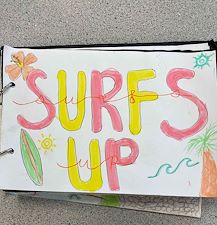 SURFS
surfs
UP
up